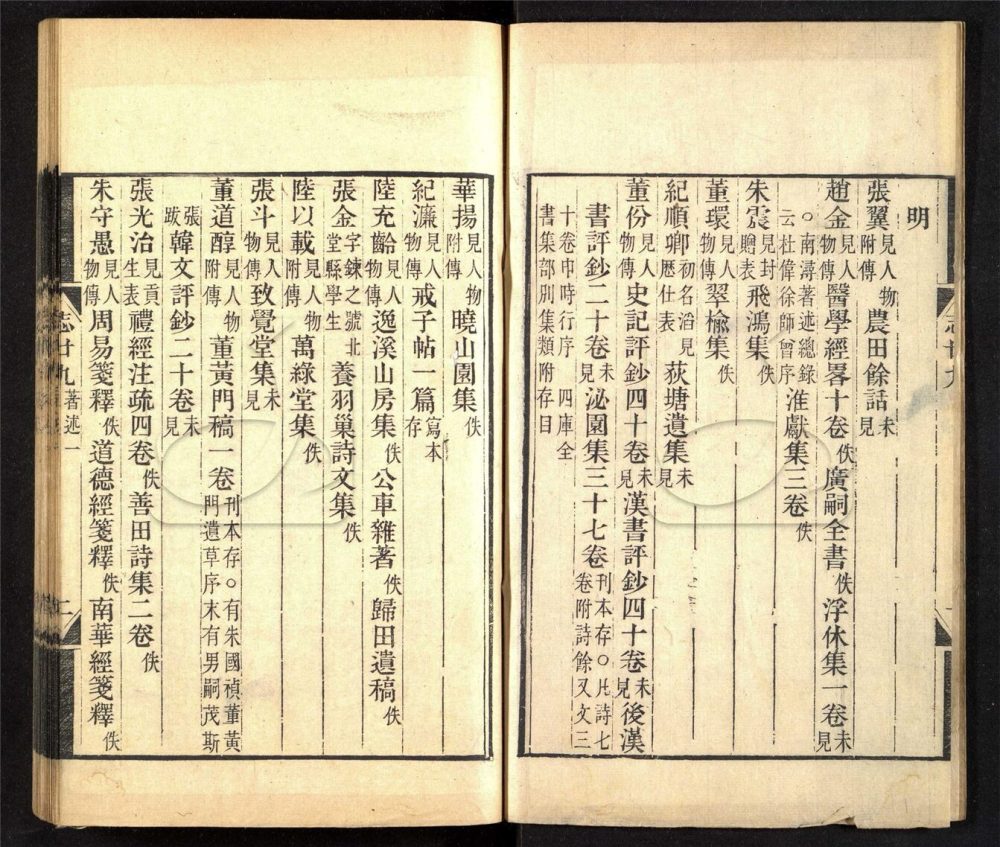 明
張翼見人物附傳 農田餘話未見
趙金見人物傳 醫學經畧十卷佚 廣嗣全書佚 浮休集一卷未見
○南潯著述總錄云杜偉徐師曾序 淮獻集三卷佚
朱震見封贈表 飛鴻集佚
董環見人物傳 翠楡集佚
紀順卿初名滔見歷仕表 荻塘遺集未見
董份見人物傳 史記評鈔四十卷未見 漢書評鈔四十卷未見 後漢
書評鈔二十卷未見 泌園集三十七卷刊本存○凡詩七卷附詩餘又文三
十卷申時行序 四庫全書集部別集類附存目
華揚見人物附傳 曉山園集佚
紀濂見人物傳 戒子帖一篇寫本存
陸充齡見人物傳 逸溪山房集佚 公車雜著佚 歸田遺稿佚
張金字鍊之號北堂縣學生 養羽巢詩文集佚
陸以載見人物附傳 萬綠堂集佚
張斗見人物傳 致覺堂集未見
董道醇見人物附傳 董黃門稿一卷刊本存○有朱國禎董黃門遺草序末有男嗣茂斯
張跋 韓文評鈔二十卷未見
張光治見貢生表 禮經注疏四卷佚 善田詩集二卷佚
朱守愚見人物傳 周易箋釋佚 道德經箋釋佚 南華經箋釋佚
志廿九 著述一 二